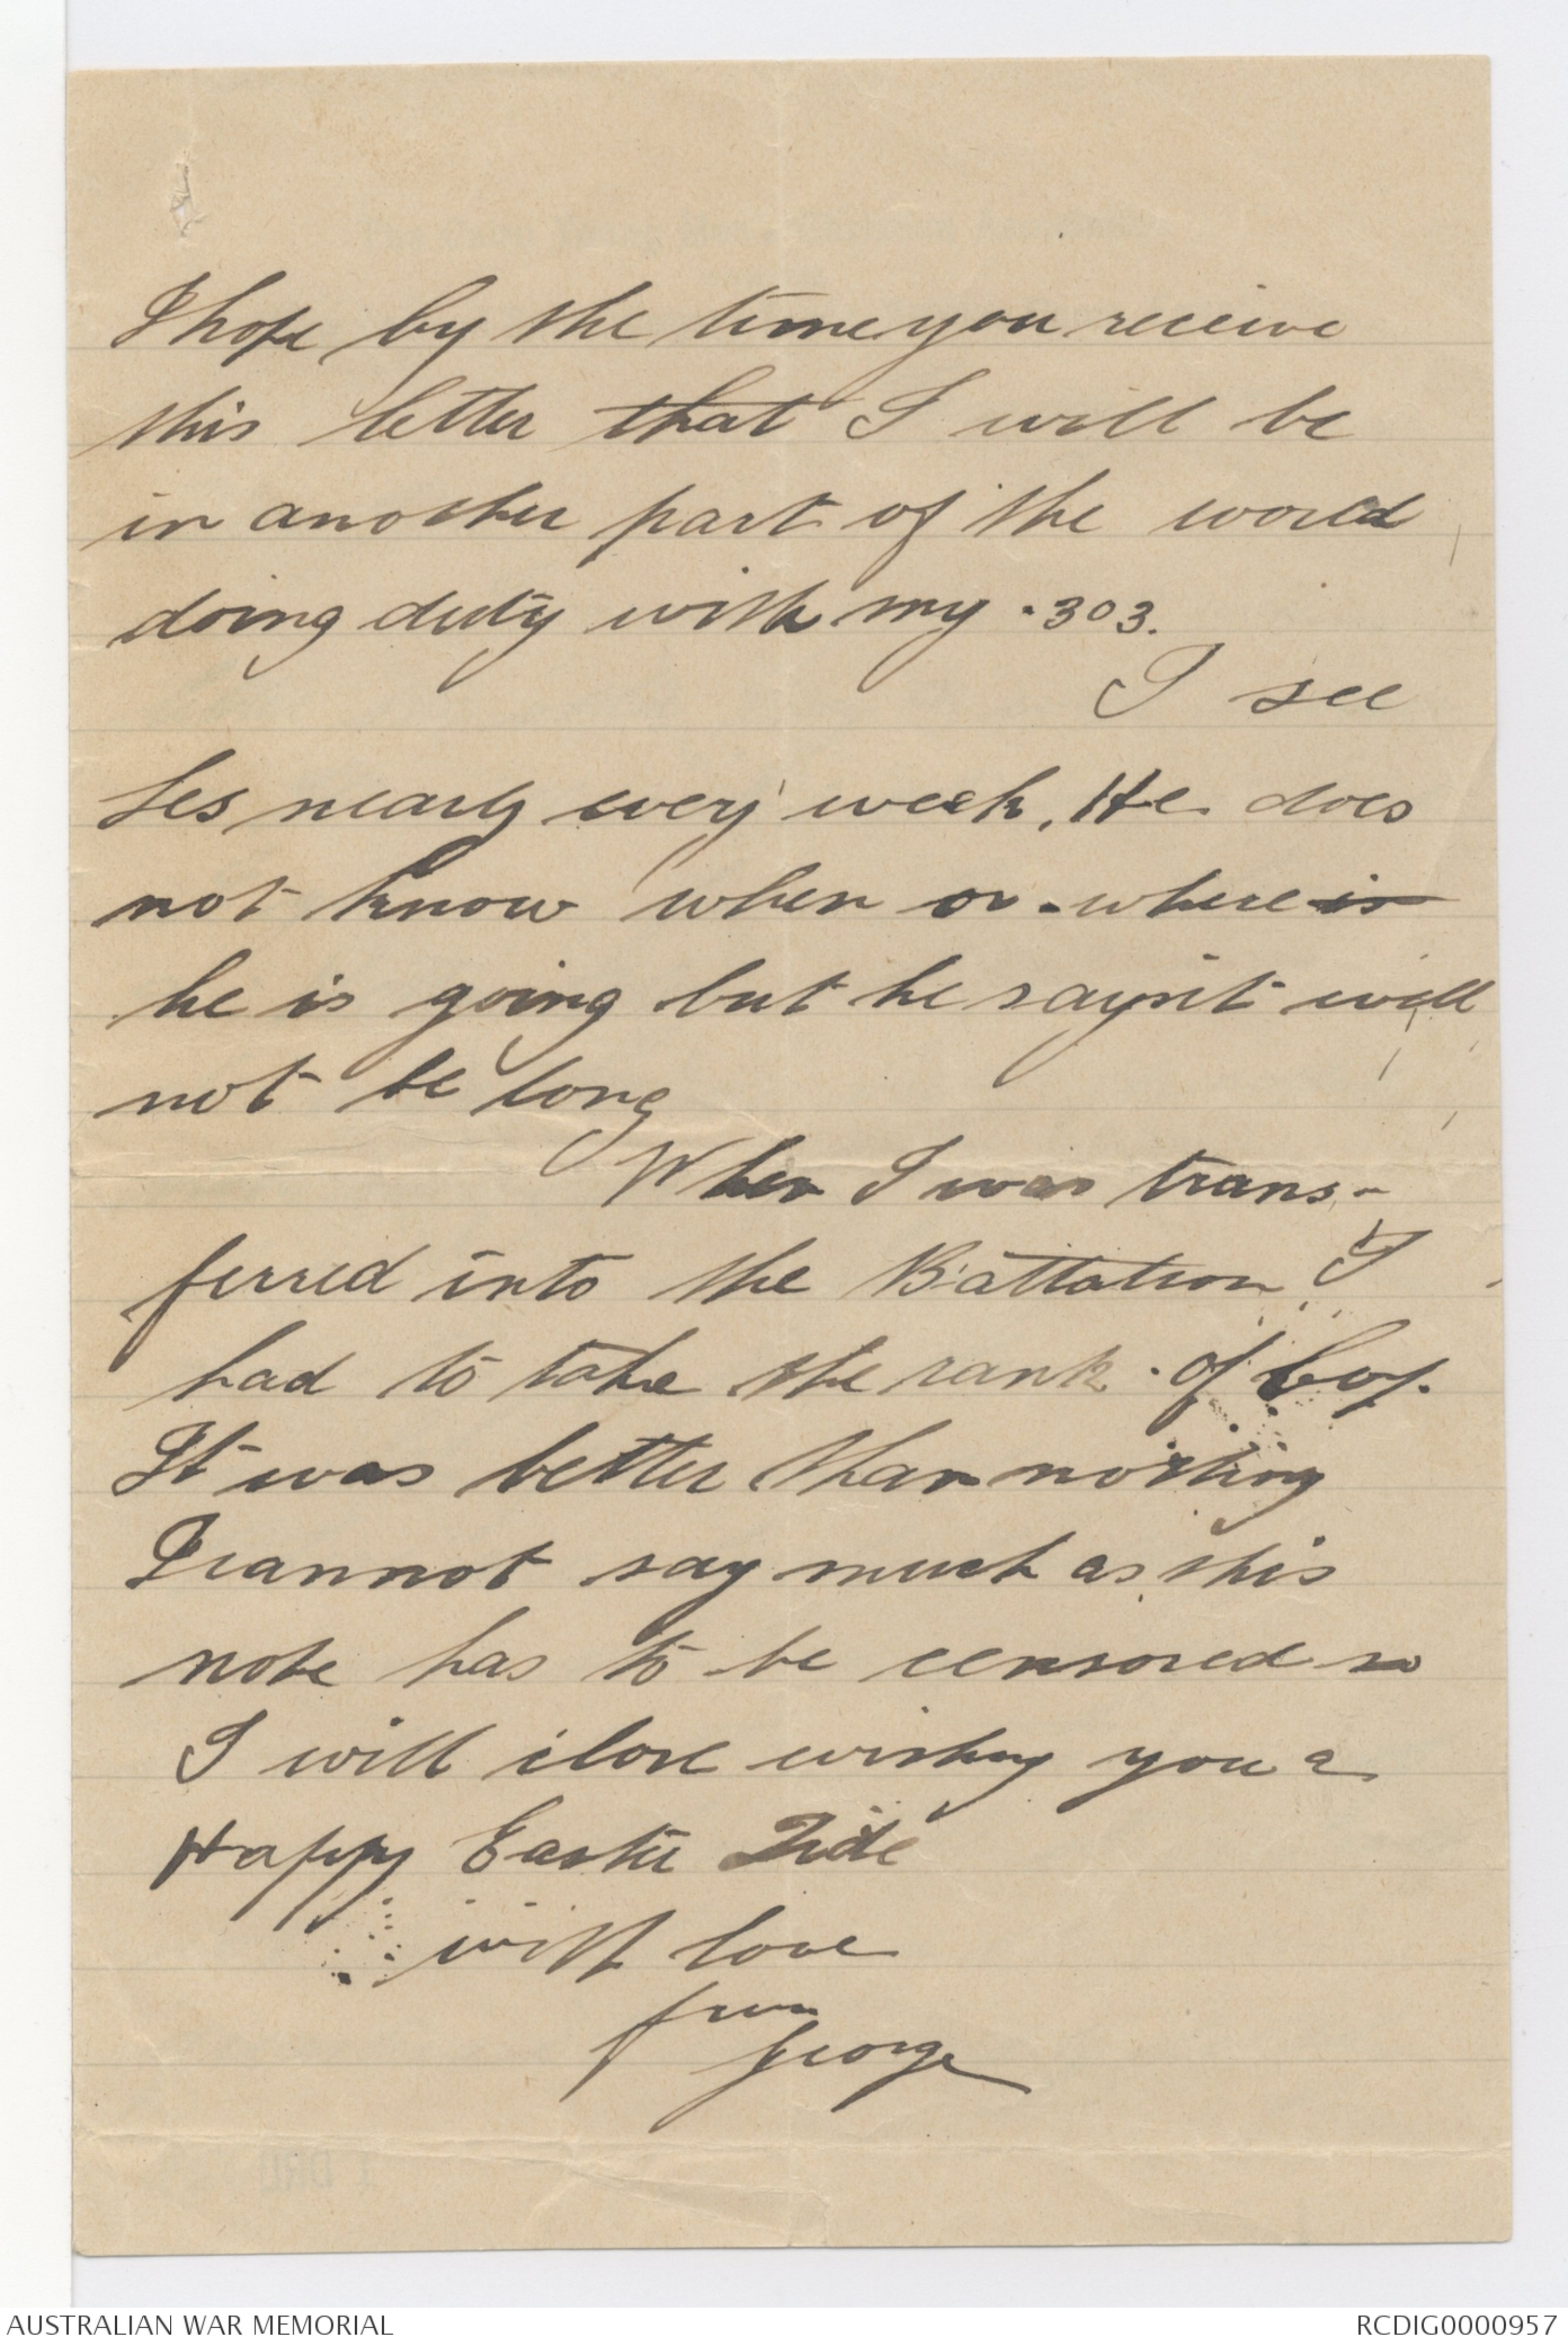 I hope by the time you receive
this letter that I will be
in another part of the world
doing duty with my .303.
I see
Les nearly every week. He does
not know when or where is
he is going but he says it will
not be long
When I was trans-
ferred into the Battalion I
had to take the rank of Corp.
It was better than nothing
I cannot say much as this
note has to be censored so
I will close wishing you a
Happy Easter Tide
with love
from
George
AUSTRALIAN WAR MEMORIAL
RCDIG0000957